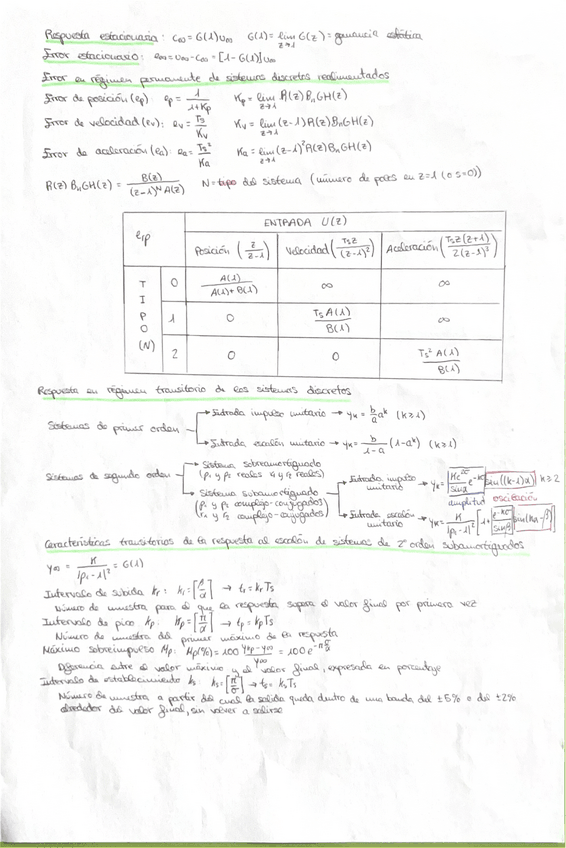 Respuesta estacionaria: c∞ = G(1)u∞   G(1) = lim z→1 G(z) = ganancia estática
Error estacionario: e∞ = u∞ - c∞ = [1 - G(1)]u∞
Error en régimen permanente de sistemas discretos realimentados
Error de posición (ep)   ep = 1/(1+Kp)   Kp = lim z→1 R(z) B₀GH(z)
Error de velocidad (ev): ev = Ts/Kv   Kv = lim z→1 (z-1)R(z)B₀GH(z)
Error de aceleración (ea): ea = Ts²/Ka   Ka = lim z→1 (z-1)²R(z)B₀GH(z)
R(z) B₀GH(z) = B(z)/((z-1)^N A(z))   N = tipo del sistema (número de polos en z=1 (o s=0))
erp   ENTRADA U(z)
Posición (z/(z-1))   Velocidad (Tsz/(z-1)²)   Aceleración (Ts z(z+1)/2(z-1)³)
TIPO (N)
0   A(1)/(A(1)+B(1))   ∞   ∞
1   0   TsA(1)/B(1)   ∞
2   0   0   Ts²A(1)/B(1)
Respuesta en régimen transitorio de los sistemas discretos
Sistemas de primer orden
→ Entrada impulso unitario → yk = b/a a^k (k≥1)
→ Entrada escalón unitario → yk = b/(1-a) (1-a^k) (k≥1)
Sistemas de segundo orden
→ Sistema sobreamortiguado
(p₁ y p₂ reales r₁ y r₂ reales)
→ Sistema subamortiguado
(p₁ y p₂ complejo-conjugados)
(r₁ y r₂ complejo-conjugados)
→ Entrada impulso unitario → yk = e^-kσ sin((k-1)α) k≥2
amplitud   oscilación
→ Entrada escalón unitario → yk = K/|p₁-1|²
Características transitorias de la respuesta al escalón de sistemas de 2º orden subamortiguados
y∞ = K/|p₁-1|² = G(1)
Intervalo de subida kr: kr = → tr = krTs
Número de muestra para el que la respuesta supera el valor final por primera vez
Intervalo de pico kp: kp = [π/α] → tp = kpTs
Número de muestra del primer máximo de la respuesta
Máximo sobreimpulso Mp: Mp(%) = 100 (ykp - y∞)/y∞ = 100 e^-πσ/α
Diferencia entre el valor máximo y el valor final, expresada en porcentaje
Intervalo de establecimiento ks: ks = [π/σ] → ts = ksTs
Número de muestra a partir del cual la salida queda dentro de una banda del ±5% o del ±2%
alrededor del valor final, sin volver a salirse